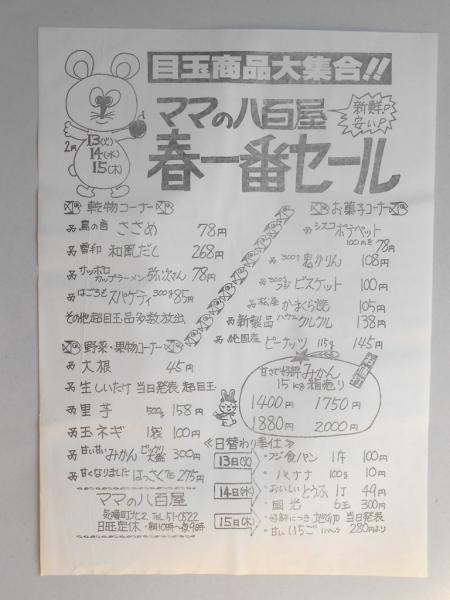 目玉商品大集合!!
ママの八百屋
新鮮!?
安い!?
春一番セール
2月
13(火)
14(水)
15(木)
乾物コーナー
78円
雪印 和風だし 268円
サッポロ カップラーメン 78円
はごろも スパゲティ 300g 85円
その他超目玉品多数放出
お菓子コーナー
シスコ ポテペット 100g 78円
300g 鬼かりん 108円
300g フジ ビスケット 100円
松屋 かまくら焼 105円
新製品 クルクル 138円
純国産 ピーナッツ 115g 145円
野菜・果物コーナー
大根 45円
生しいたけ 当日発表 超目玉
里芋 500g 158円
玉ネギ 1袋 100円
甘い甘いみかん 300円
甘くなりました はっさく 275円
甘さで好評 みかん
15kg箱売り
1400円 1750円
1880円 2000円
《日替わり奉仕》
13日(火) フジ食パン 1斤 100円
バナナ 100g 10円
14日(水) おいしいとうふ 1丁 49円
国光 6玉 300円
15日(木) 好評につき 地卵 当日発表
甘いいちご 1パック 280円より
ママの八百屋
TEL.51-0522
日曜定休・朝10時~夜9時